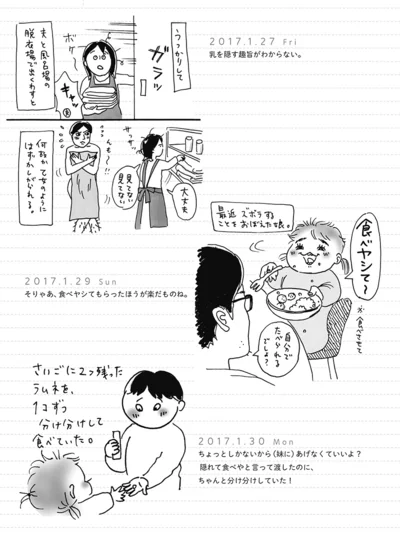 2017.1.27 Fri
乳を隠す趣旨がわからない。
うっかりして
ガラッ
ボケー
キャッ
夫と風呂場の
脱衣場で出くわすと
サッサッ
んも〜!!
大丈夫
見てない
見てない
何故か乙女のように
はずかしがられる。
最近ズボラする
ことをおぼえた娘。
食べヤシて〜
※食べさせて
自分で
たべられる
でしょ?
2017.1.29 Sun
そりゃあ、食べヤシてもらったほうが楽だものね。
さいごに2つ残った
ラムネを、
1コずつ
分け分けして
食べていた。
2017.1.30 Mon
ちょっとしかないから（妹に）あげなくていいよ？
隠れて食べやと言って渡したのに、
ちゃんと分け分けしていた！